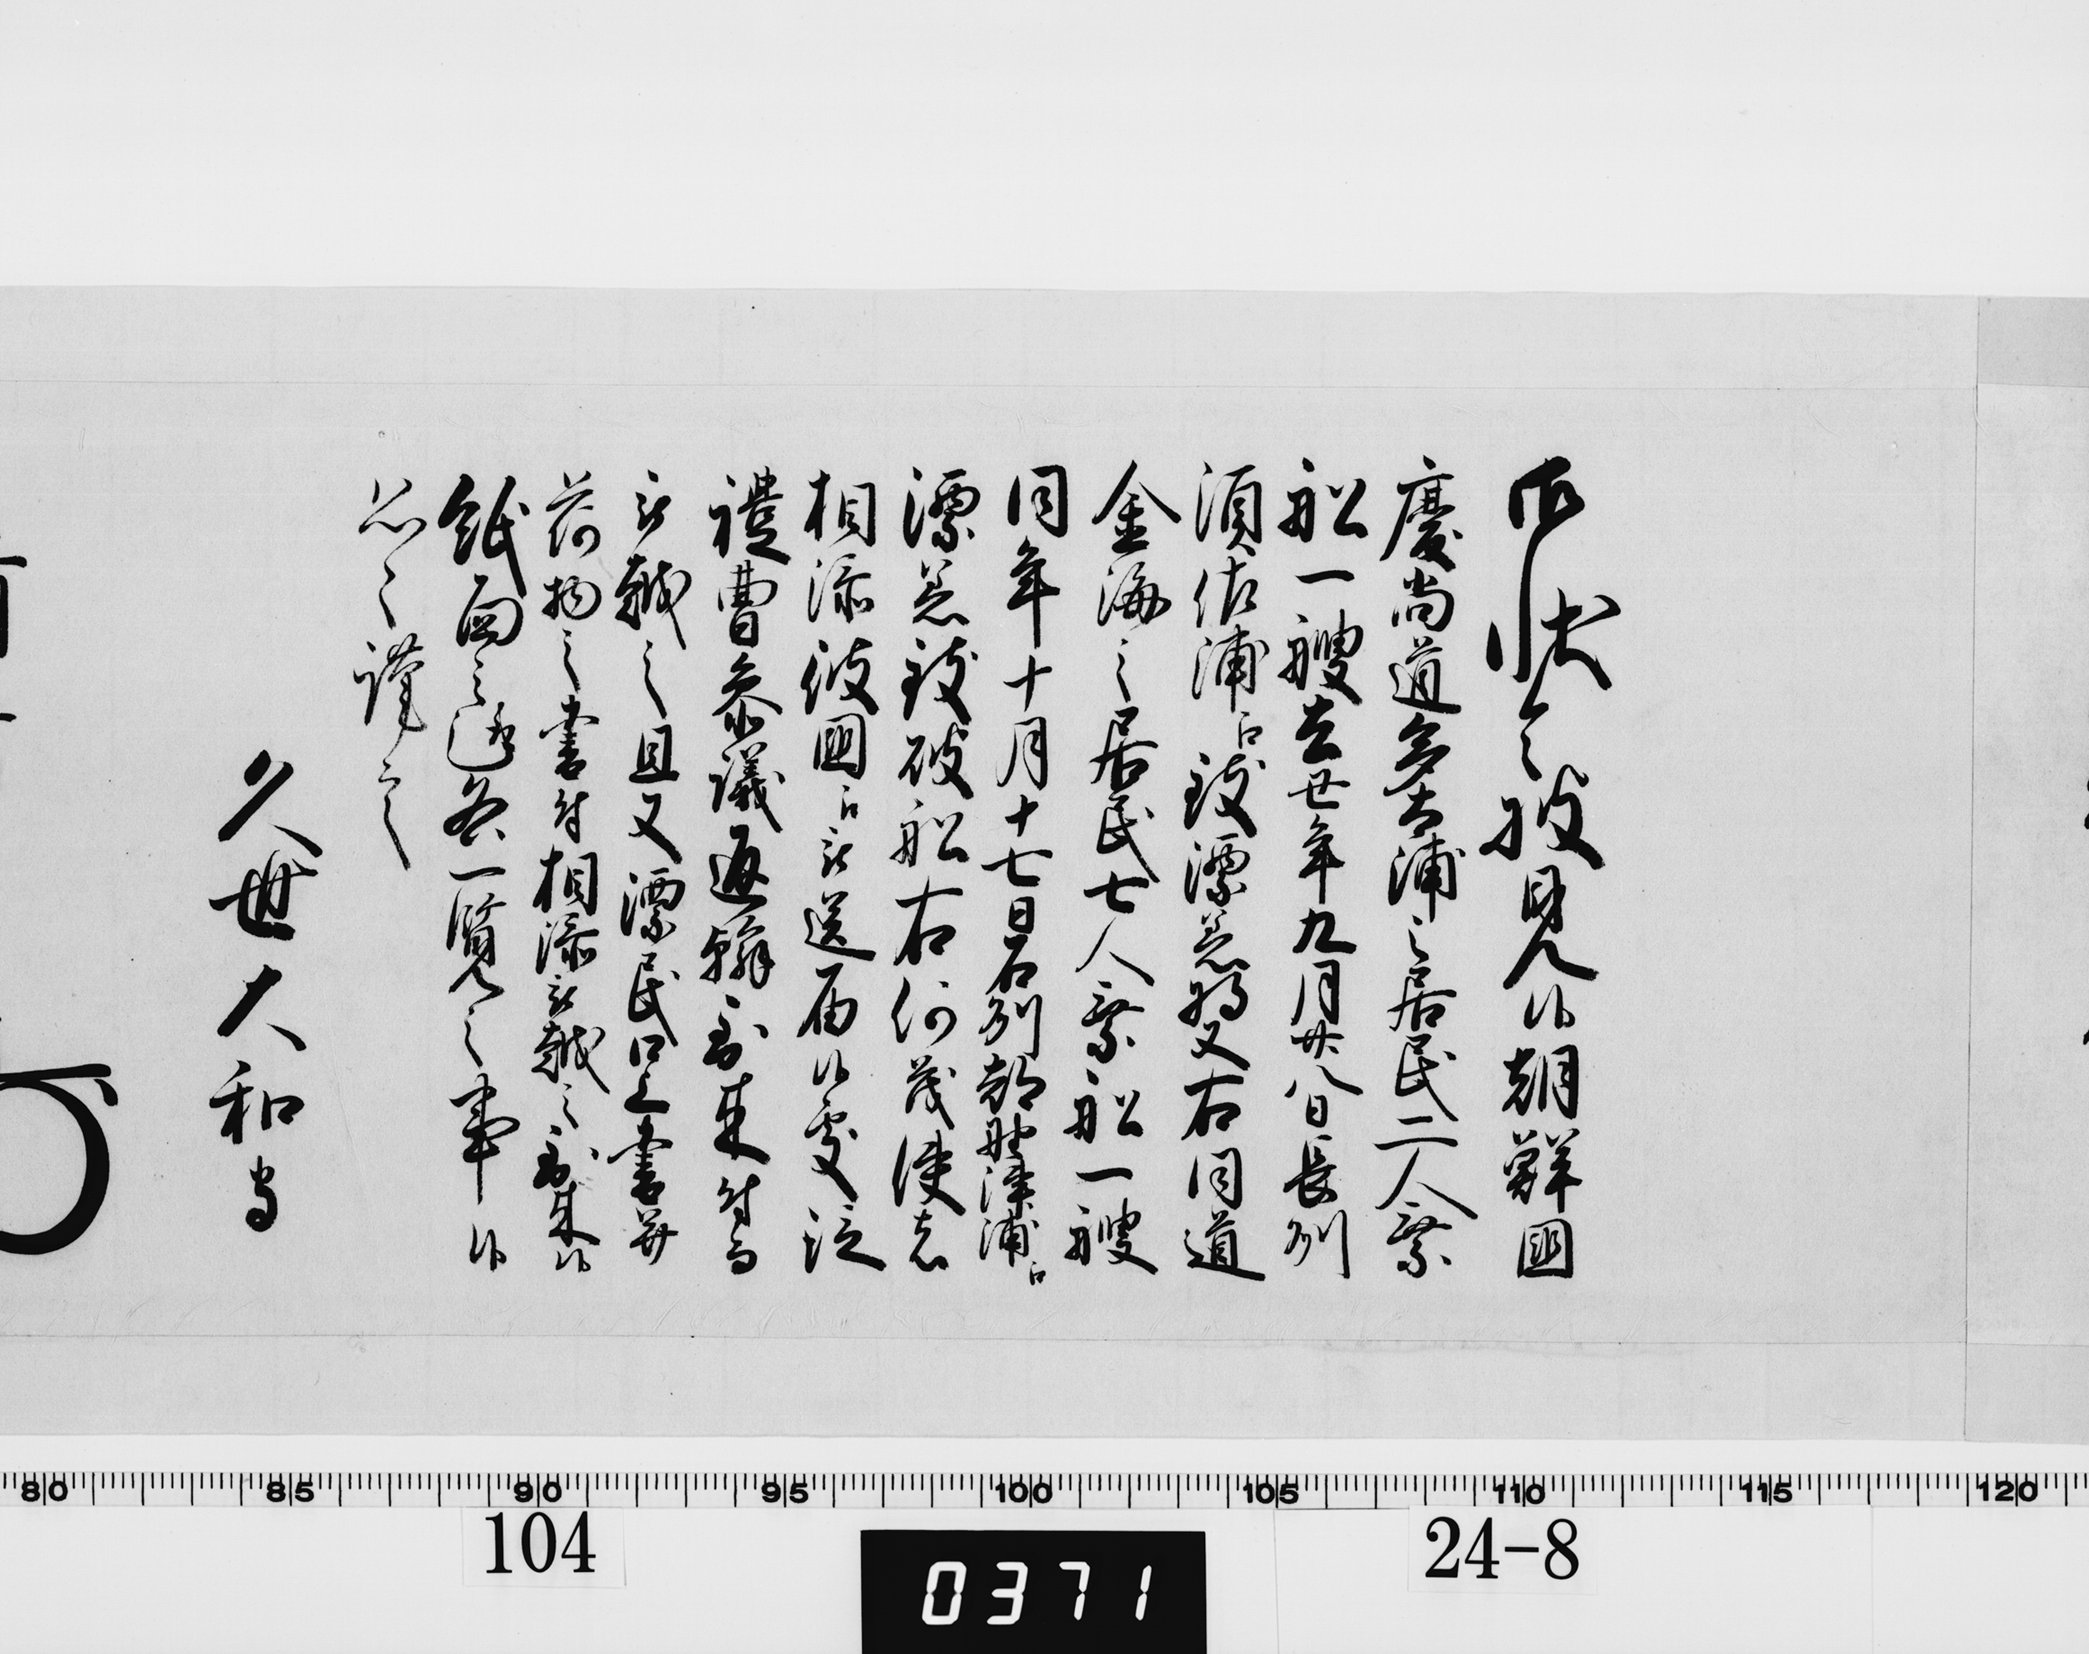 御状令披見候朝鮮国
慶尚道多大浦之居民二人乗
船一艘去丗年九月廿八日長州
須佐浦江致漂着将又右同道
金海之居民七人乗船一艘
同年十月十七日石州都野津浦江
漂着致破船右何茂使者
相添彼国江被送届候處従
禮曹参議返翰到来付而
被献之且又漂民口上書并
荷物之書付相添被献之到来候
紙面之通各一覧之事候
恐々謹言
久世大和守
80 85 90 95 100 105 110 115 120
104
0371
24-8